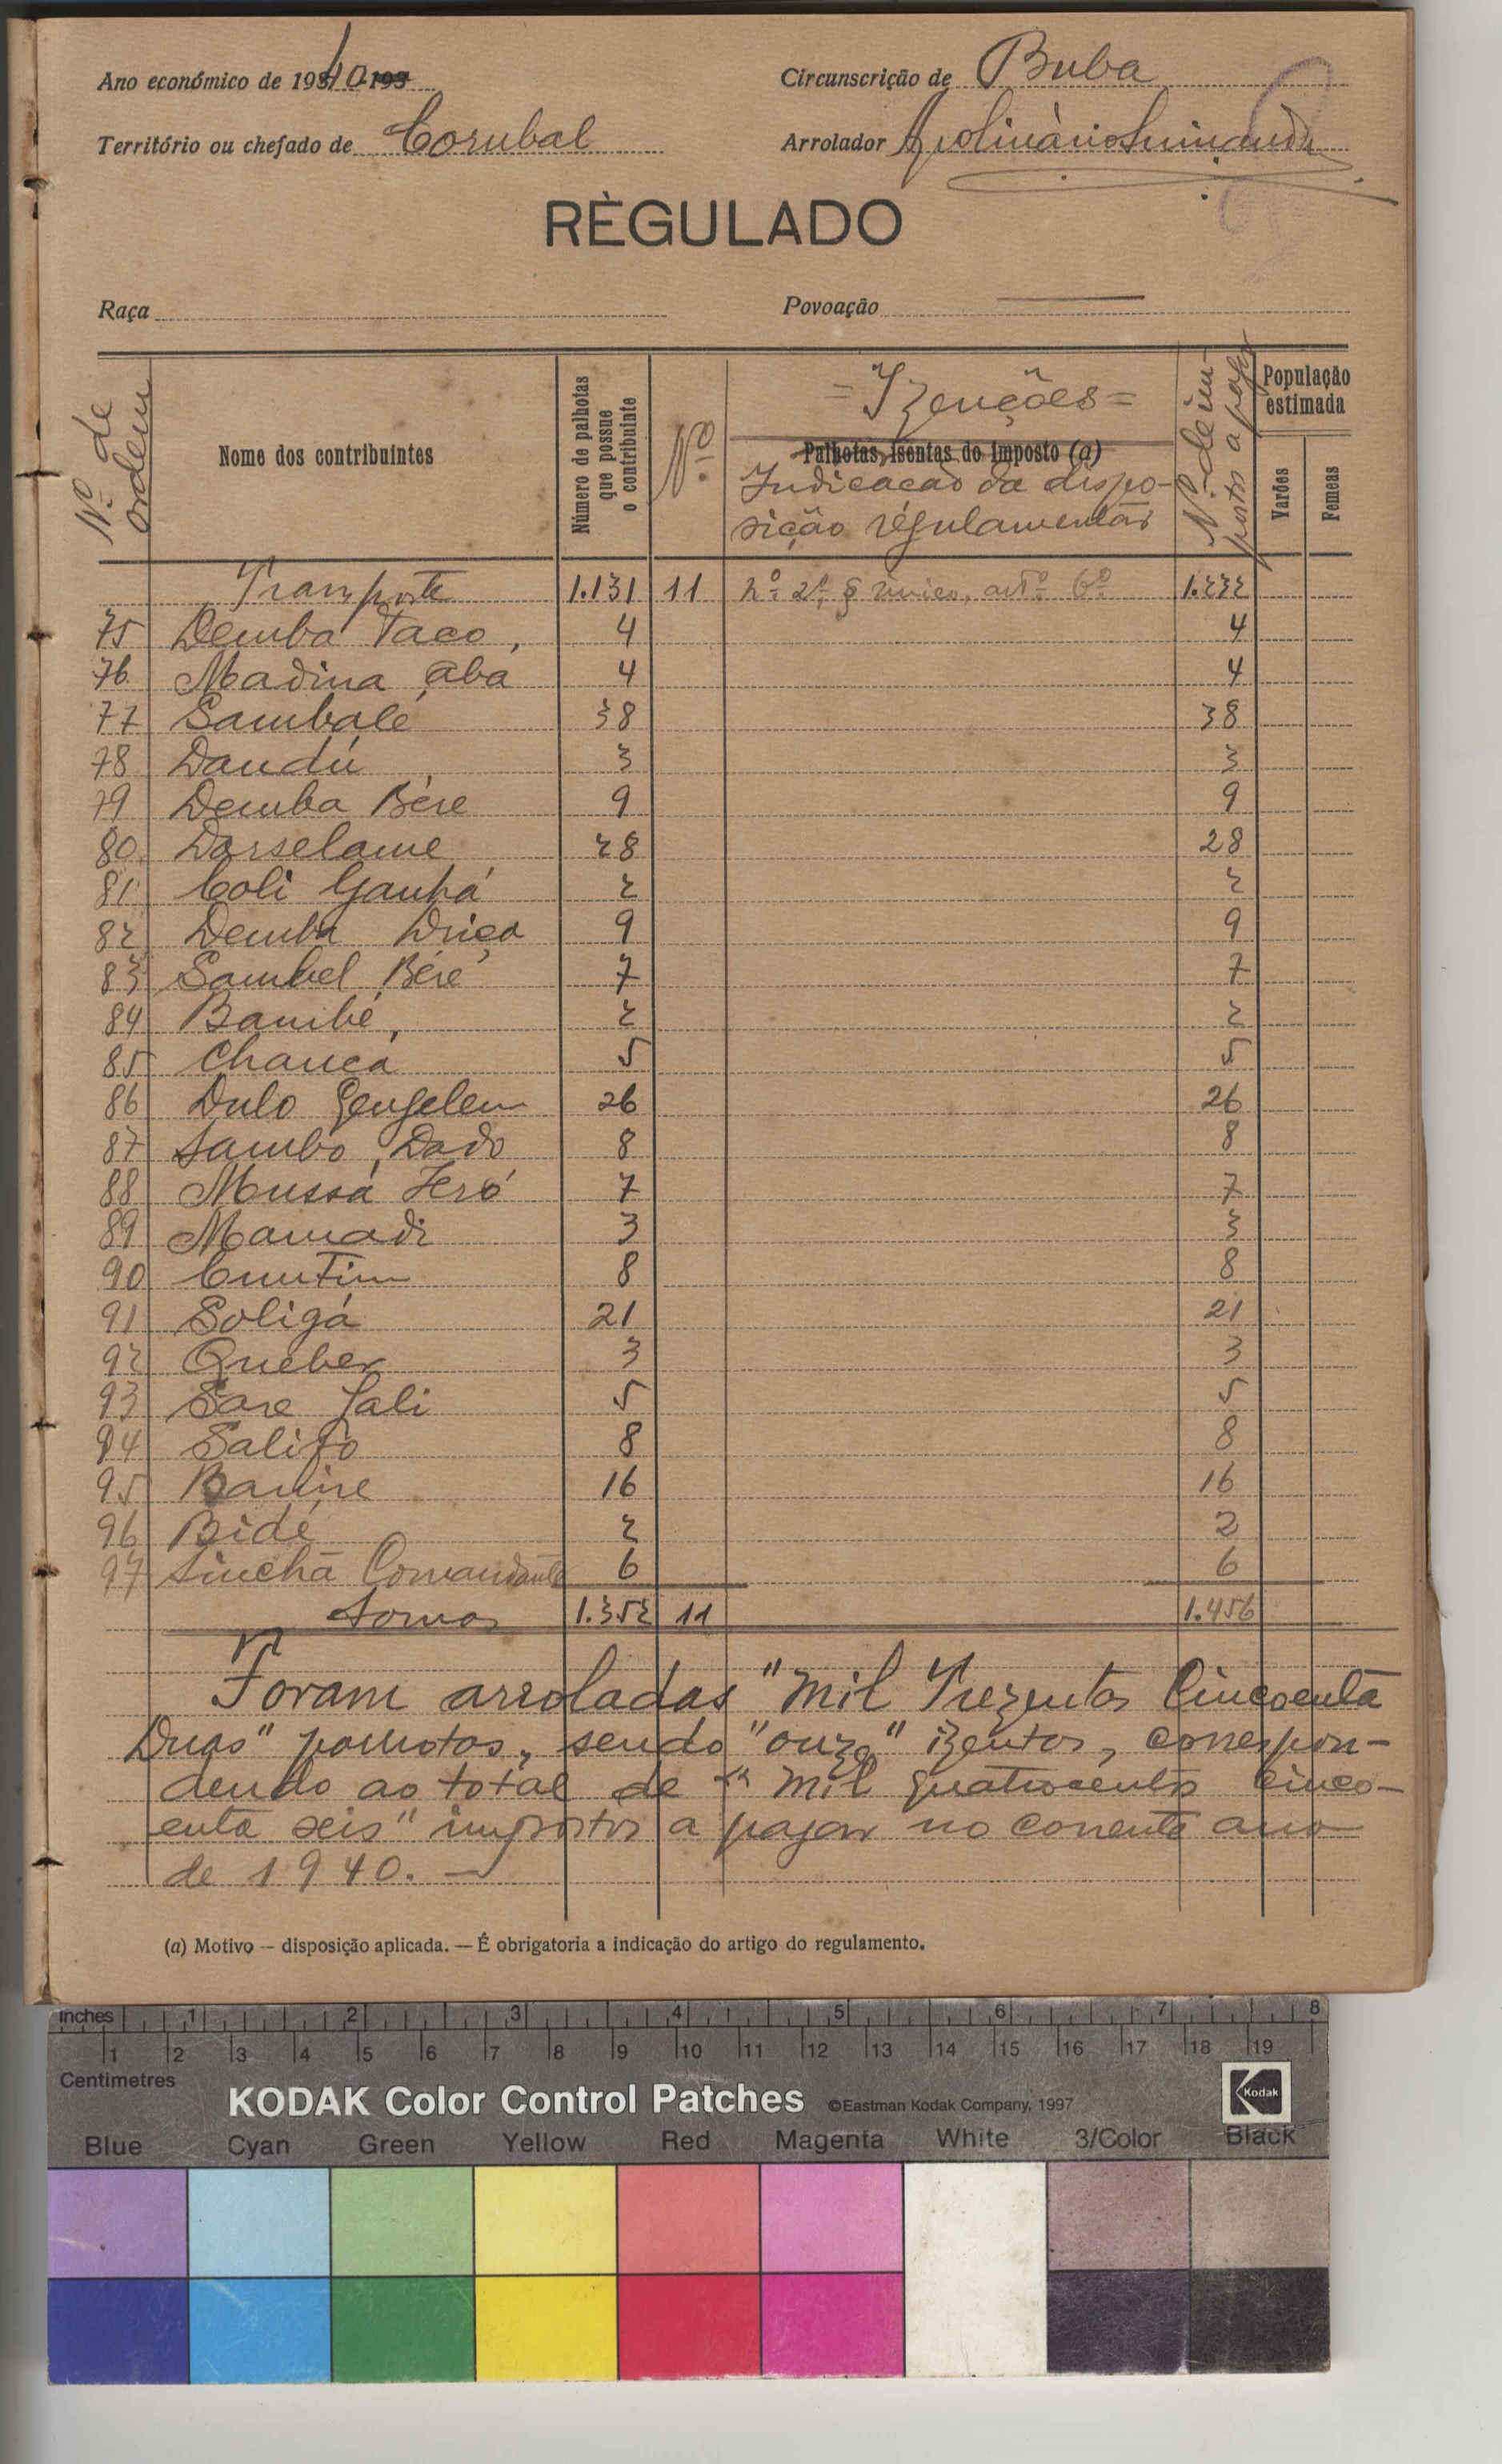 Ano económico de 1940
Circunscrição de Buba
Território ou chefado de Corubal
Arrolador Apolinário
RÈGULADO
Raça
Povoação
Nº de ordem
Nome dos contribuintes
Número de palhotas que possue o contribuinte
Nº
=Izenções=
Palhotas isentas do imposto (a)
Indicacao da dispo-
sição régulamentar
Nº de im-
posto a pagar
População estimada
Varões
Femeas
Transporte 1.131 11 nº 2º, § único, artº 6º 1.232
75 Demba Taco, 4 4
76 Madina aba 4 4
77 Sambalé 38 38
78 Dandú 3 3
79 Demba Bére 9 9
80 Darselame 28 28
81 Coli Ganhá 2 2
82 Demba Driça 9 9
83 Sambel Béré 7 7
84 Bambé, 2 2
85 Chancá 5 5
86 Dulo Gengelem 26 26
87 Sambo Dado 8 8
88 Mussá Jeró 7 7
89 Mamadi 3 3
90 Cuntim 8 8
91 Soligá 21 21
92 Queber 3 3
93 Sare Jali 5 5
94 Salifo 8 8
95 Banire 16 16
96 Bidé 2 2
97 Sinchã Comandante 6 6
Somas 1.352 11 1.456
Foram arroladas "Mil Trezentas Cincoenta
Duas" palhotas, sendo "onze" izentas, correspon-
dendo ao total de "Mil quatrocentos cinco-
enta seis" impostos a pagar no corrente ano
de 1940. —
(a) Motivo — disposição aplicada. — É obrigatoria a indicação do artigo do regulamento.
Inches 1 2 3 4 5 6 7 8
1 2 3 4 5 6 7 8 9 10 11 12 13 14 15 16 17 18 19
Centimetres
KODAK Color Control Patches ©Eastman Kodak Company, 1997 Kodak
Blue Cyan Green Yellow Red Magenta White 3/Color Black